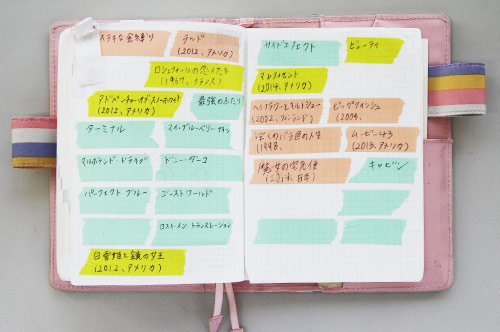 ステキな金縛り
テッド
(2012、アメリカ)
ロシュフォールの恋人たち
(1967、フランス)
(2012、アメリカ)
最強のふたり
ターミナル
マイ・ブルーベリー・ナイツ
マルホランド ドライブ
ドニー・ダーコ
パーフェクト ブルー
ゴーストワールド
ロスト・イン トランスレーション
白雪姫と鏡の女王
(2012、アメリカ)
サイドエフェクト
ビューティ
マレフィセント
(2014、アメリカ)
(2002、フィンランド)
ビッグフィッシュ
(2004、
ぼくのバラ色の人生
(1998、
ムービー43
(2013、アメリカ)
魔女の宅急便
(2014、日本)
キャビン